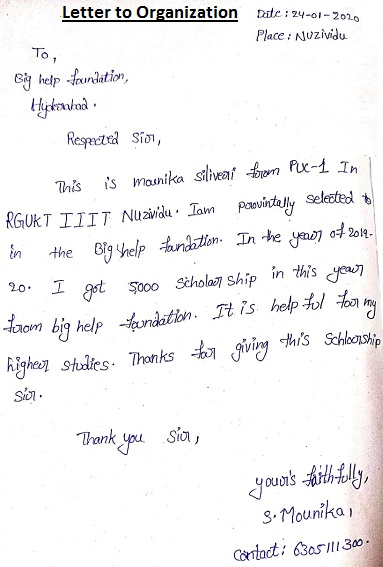 Letter to Organization
Date : 24-01-2020
Place : Nuzividu
To,
Big help foundation,
Hyderabad.
Respected Sir,
This is mounika siliveri from PUC-1 In
RGUKT IIIT Nuzividu. Iam provintally selected to
in the Big help foundation. In the year of 2019-
20. I got 5000 Scholar Ship in this year
from big help foundation. It is help ful for my
higher studies. Thanks for giving this Schloorship
Sir.
Thank you Sir,
your's faithfully,
S. Mounika,
Contact : 6305111300.